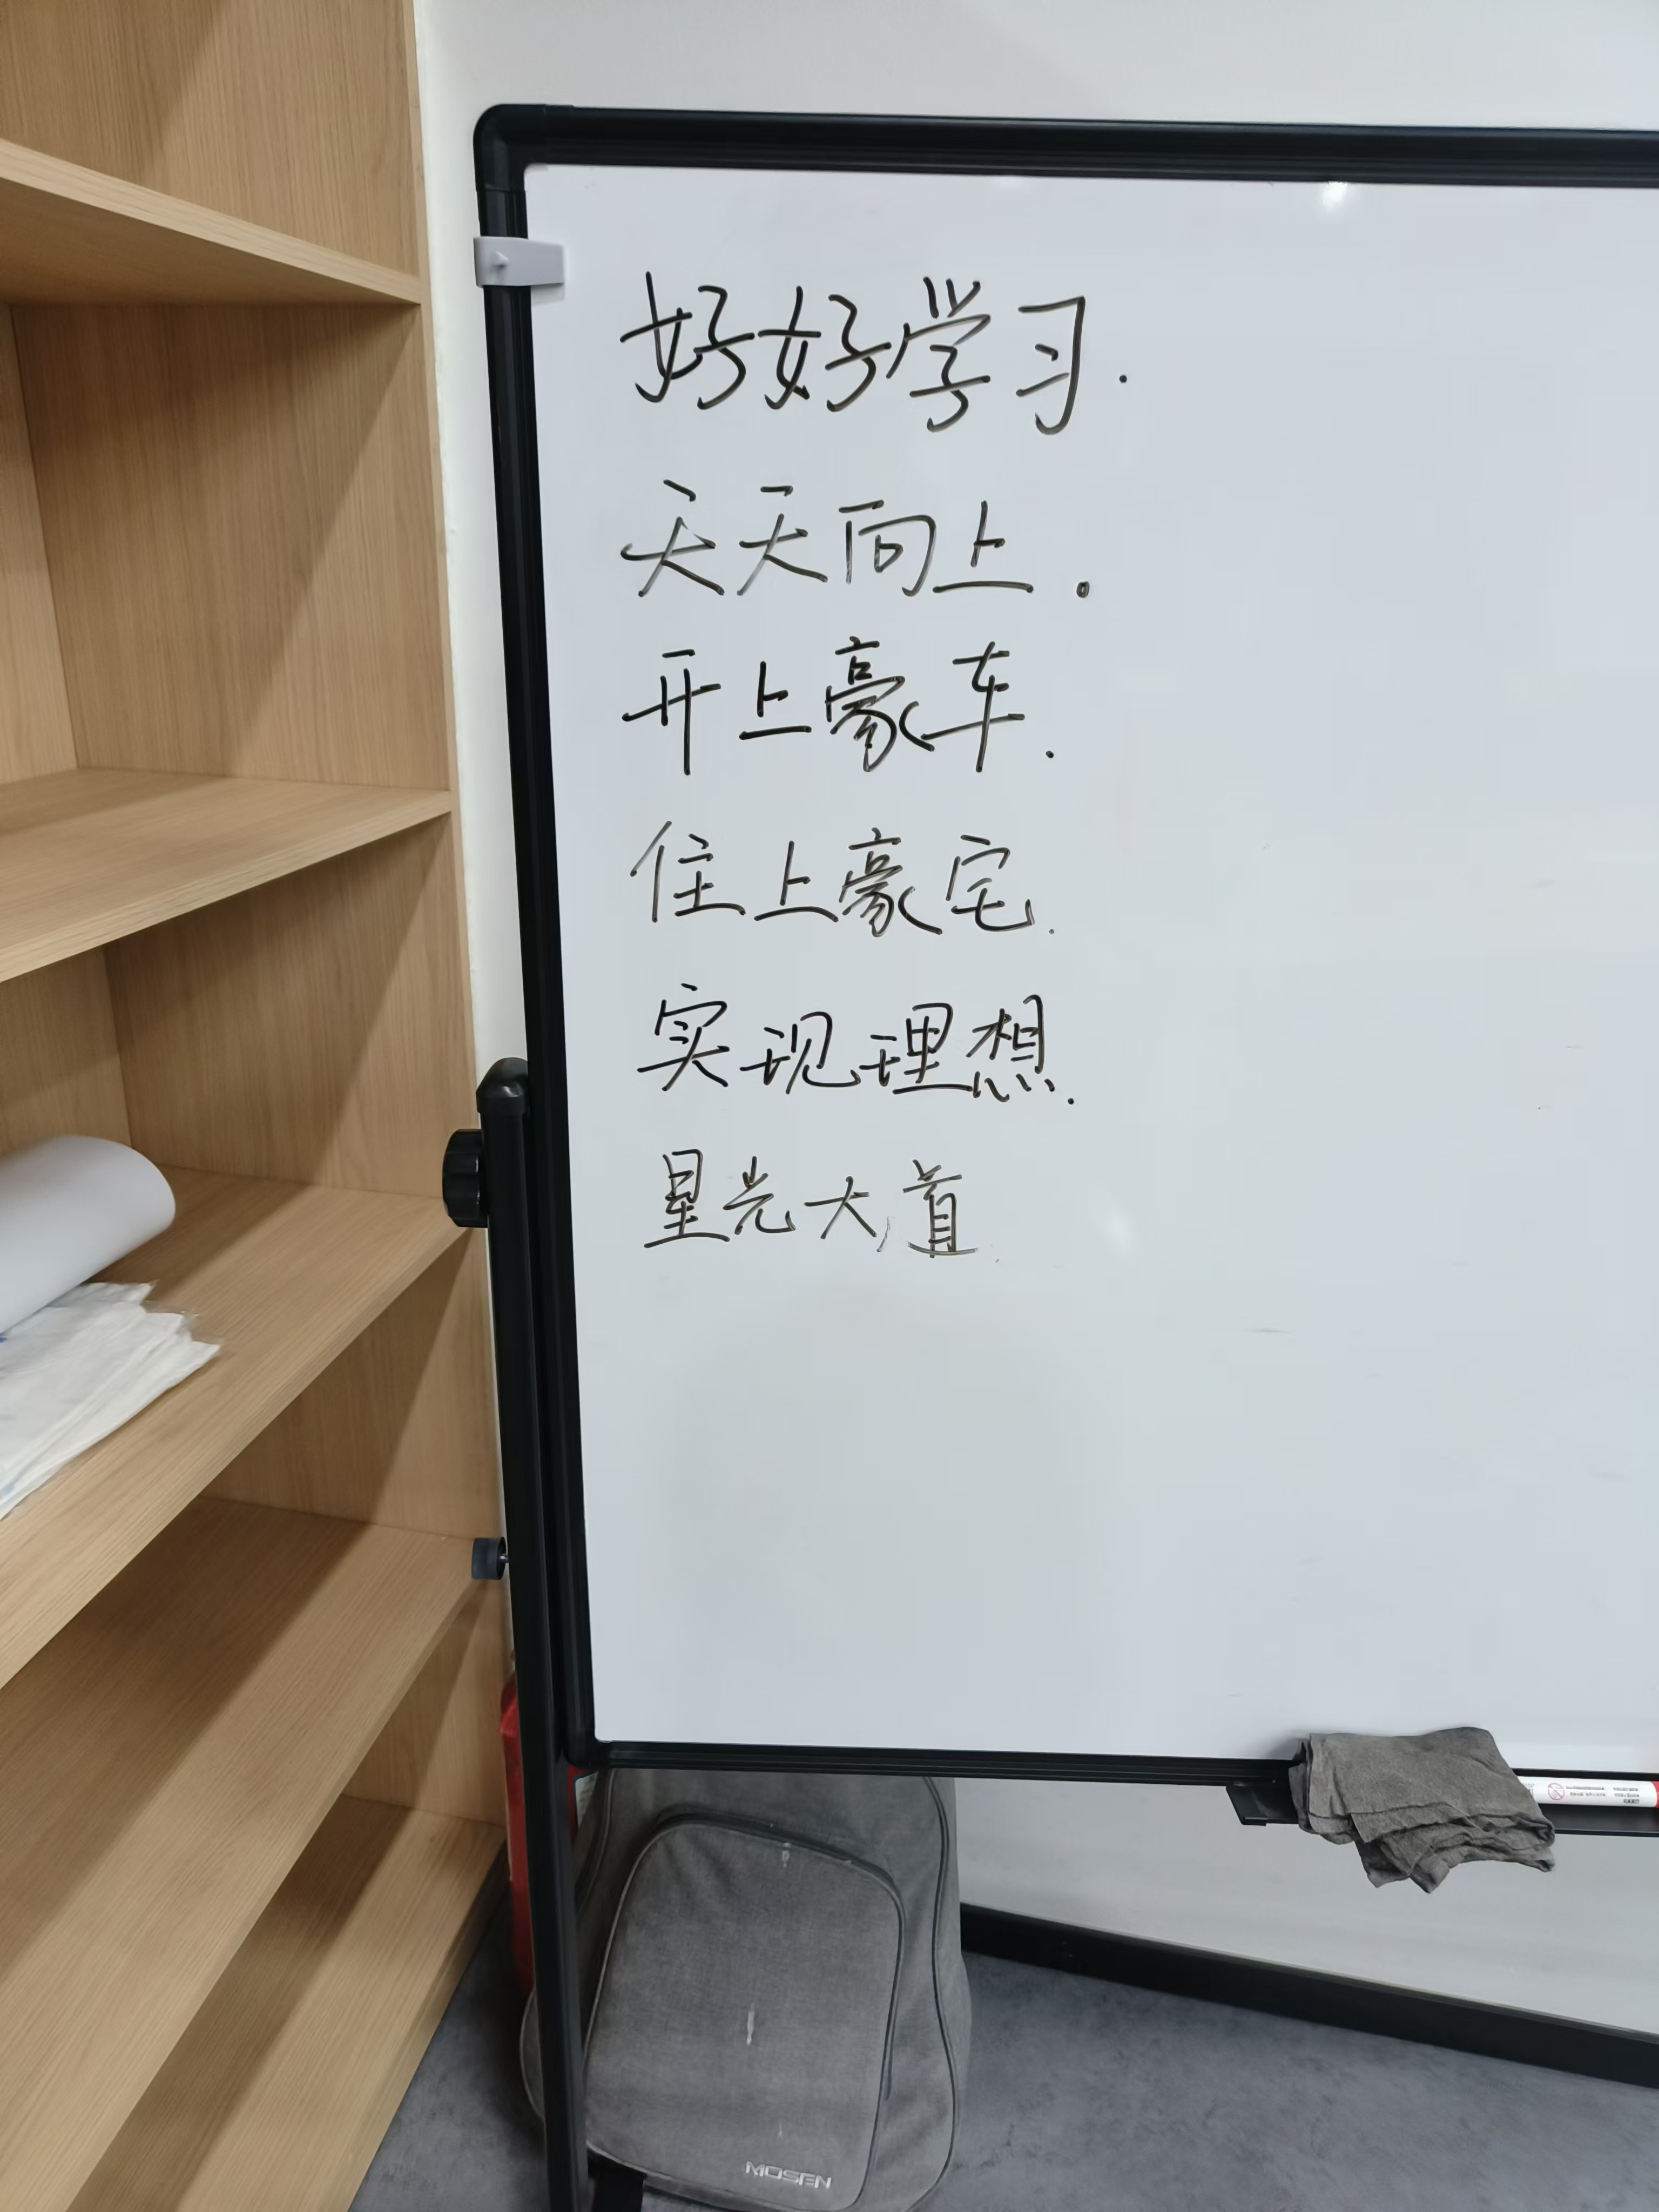 好好学习.
天天向上。
开上豪车.
住上豪宅.
实现理想.
星光大道.
MOSEN